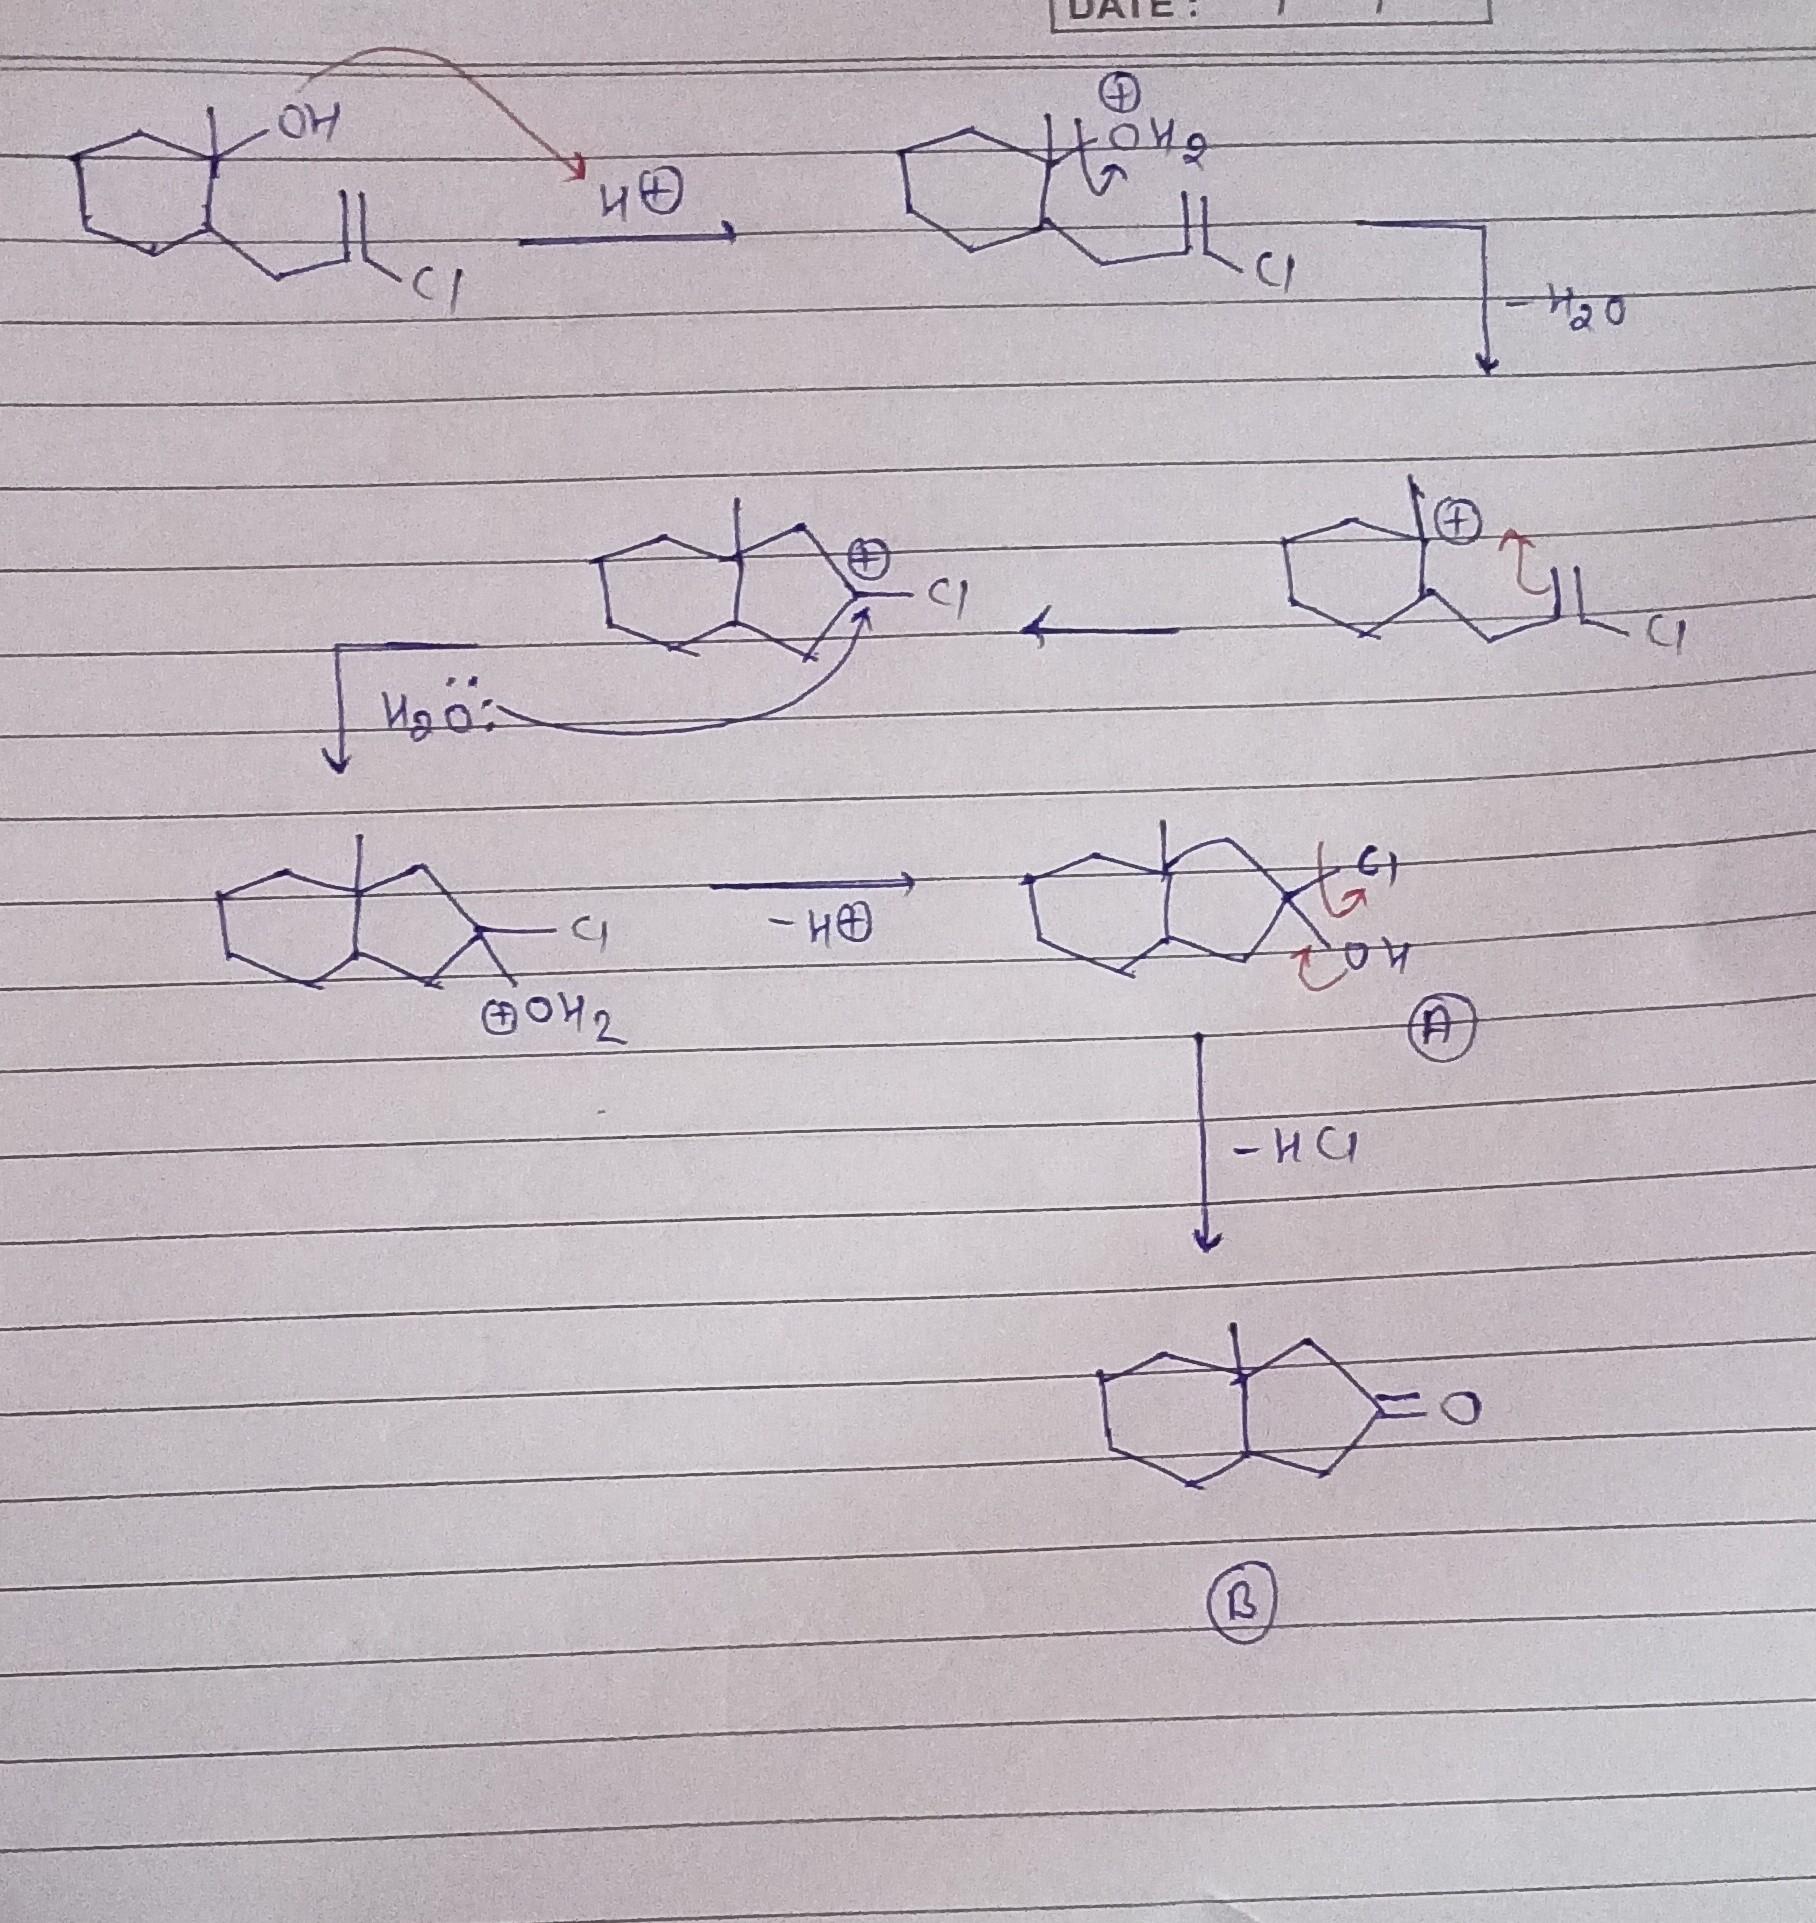 DATE : / /
OH
H⊕
Cl
⊕
OH2
Cl
- H2O
⊕
Cl
⊕
Cl
H2Ö:
Cl
⊕OH2
- H⊕
Cl
OH
A
- HCl
=O
B